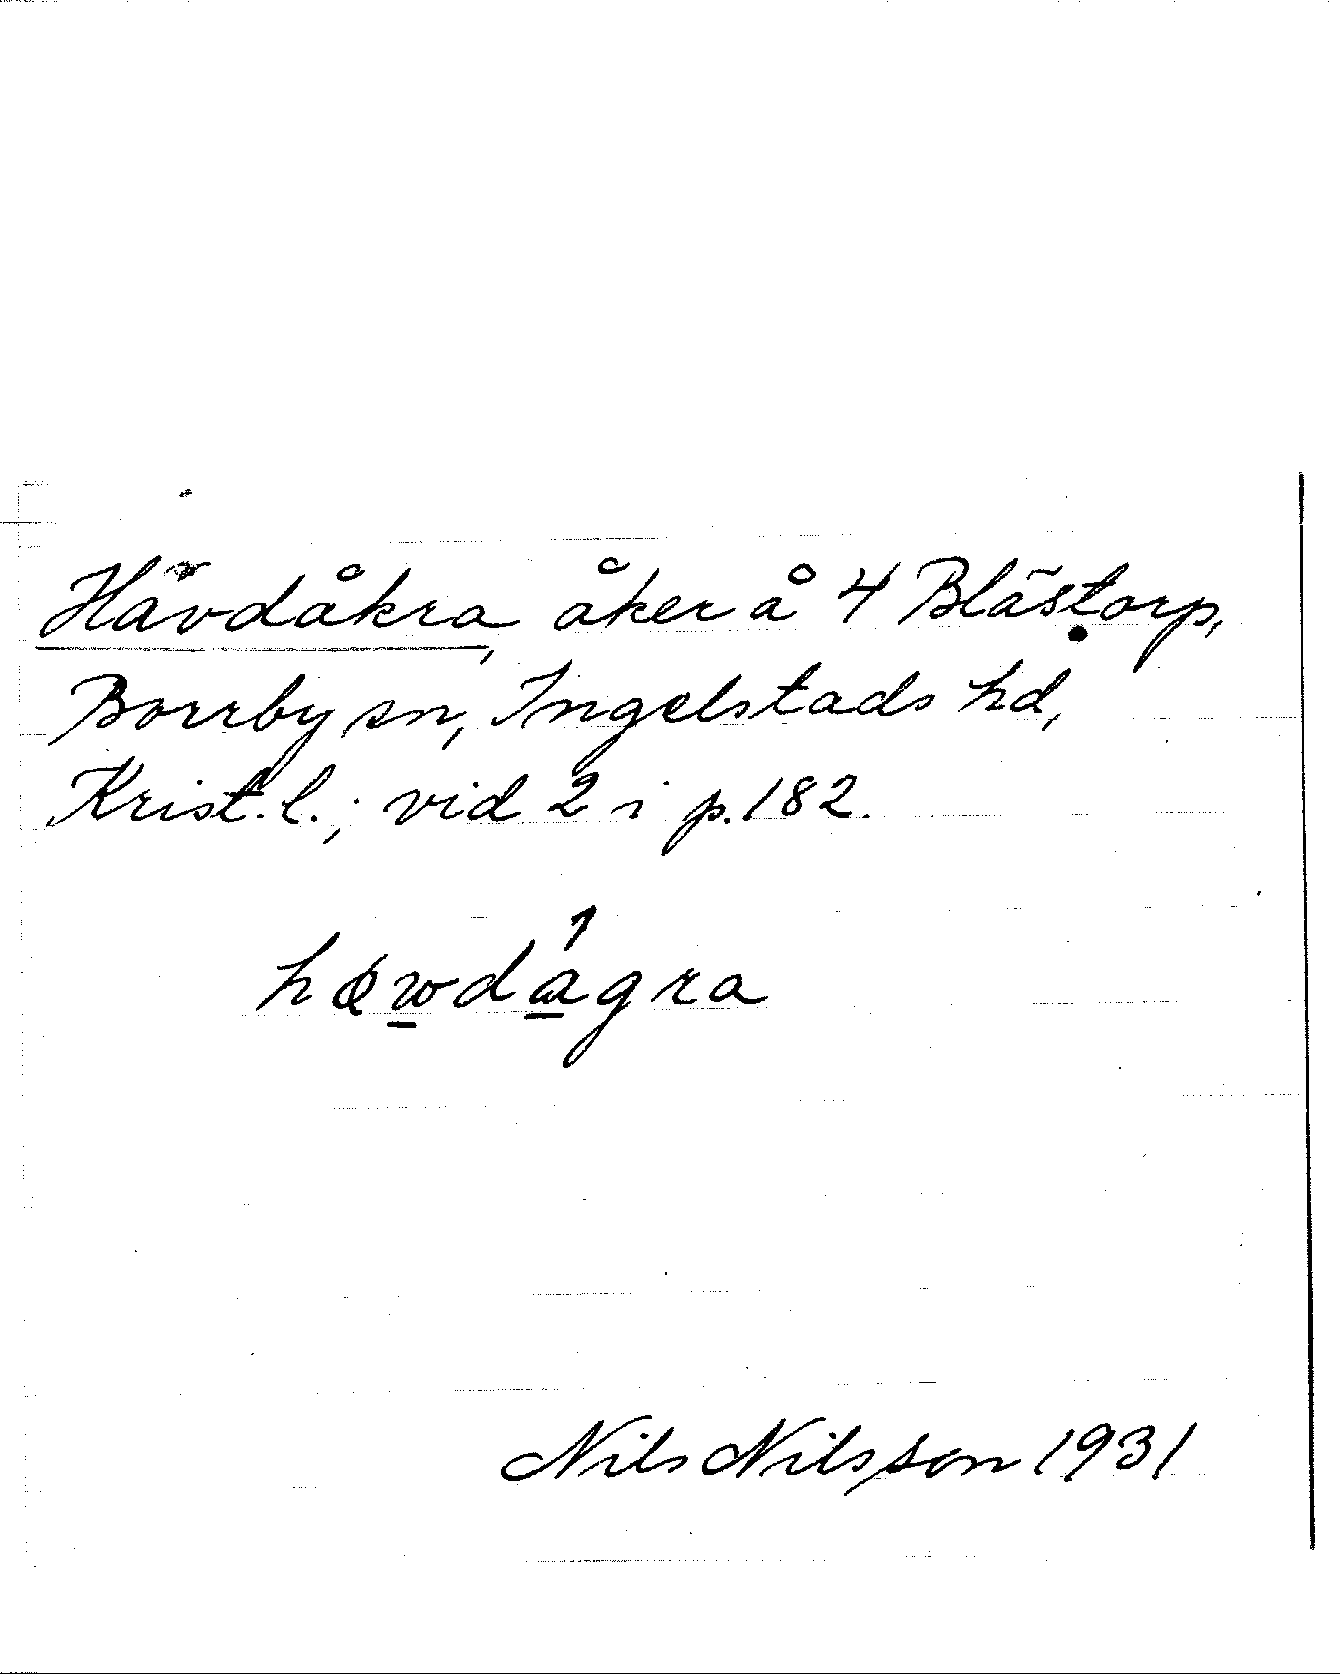 Hävdåkra, åker å 4 Blästorp,
Borrby sn, Ingelstads hd,
Krist. l.; vid 2 i p. 182.
Nils Nilsson 1931